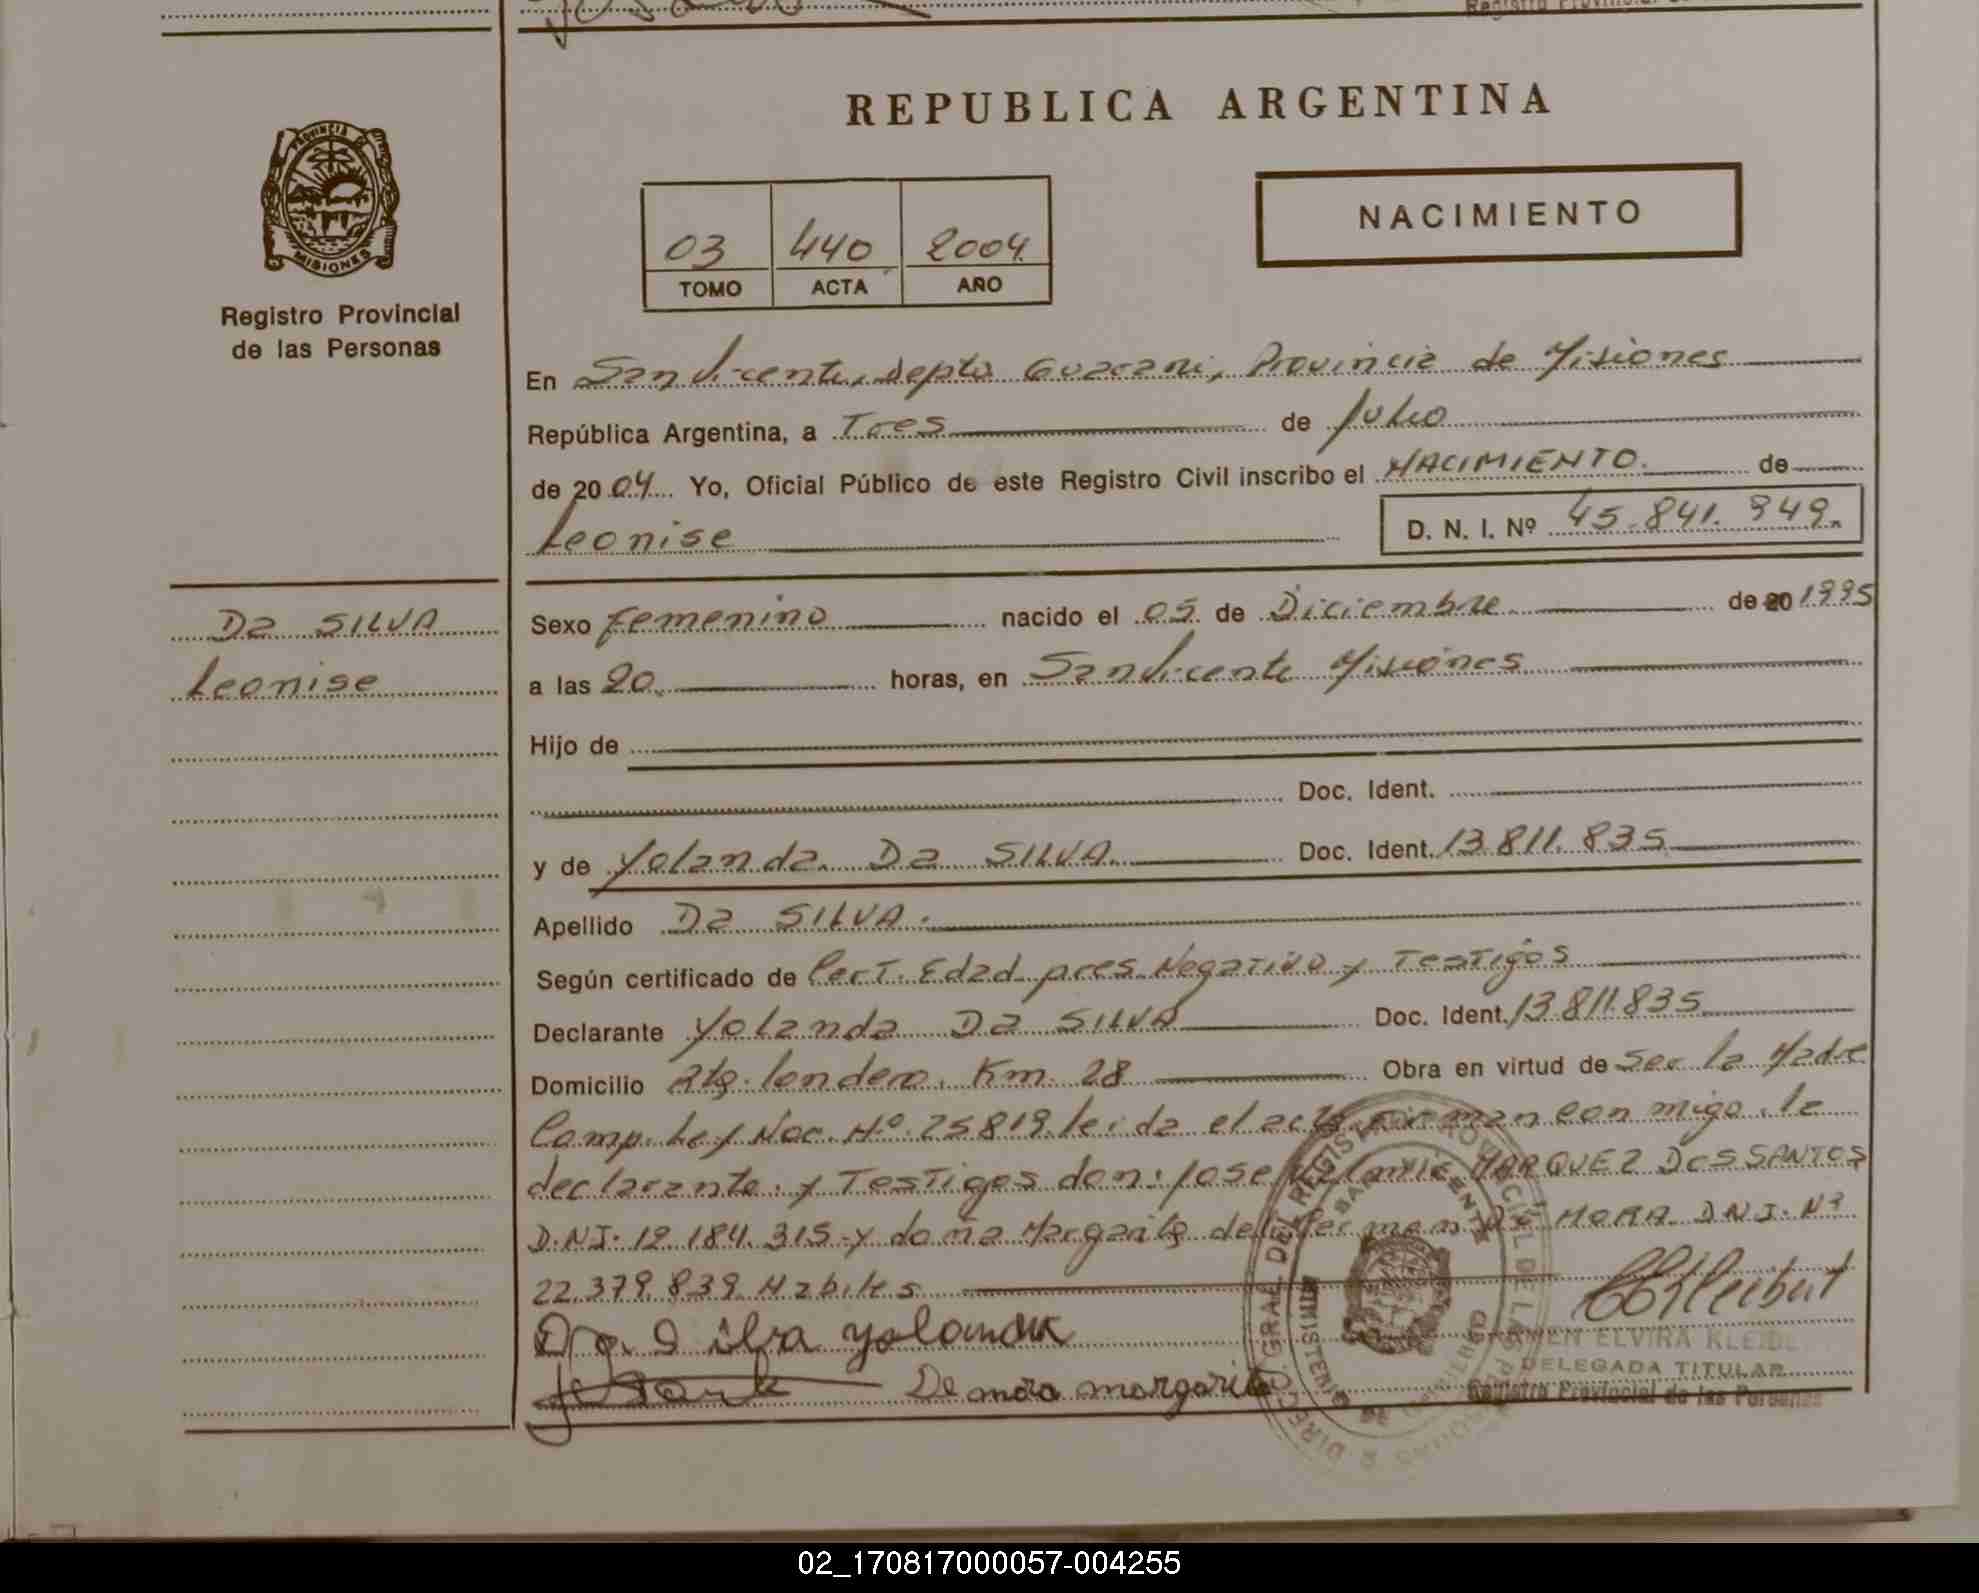 REPUBLICA ARGENTINA
PROVINCIA DE
MISIONES
Registro Provincial
de las Personas
NACIMIENTO
03 440 2004
TOMO ACTA AÑO
En San Vicente, Depto Guarani, Provincia de Misiones
República Argentina, a Tres de Julio
de 2004. Yo, Oficial Público de este Registro Civil inscribo el NACIMIENTO. de
Leonise
D. N. I. Nº 45.841.949.
Da SILVA
Leonise
Sexo Femenino nacido el 05 de Diciembre de 20 1995
a las 20. horas, en San Vicente Misiones
Hijo de
Doc. Ident.
y de Yolanda Da SILVA Doc. Ident. 13.811.835
Apellido Da SILVA.
Según certificado de Cert. Edad pres Negativo y Testigos
Declarante Yolanda Da SILVA Doc. Ident. 13.811.835
Domicilio Ptg. londero. Km. 28 Obra en virtud de Ser la Madre
Comp. Ley Nac. Nº 25819. leida el acta firman con migo. la
declarante. y Testigos don: Jose MARQUEZ DOS SANTOS
D.N.I. 12.184.315 y doña Margarita del De MORA D.N.I. Nº
22.379.839 Habiles
Da Silva yolanda
De mora margarita
ELVIRA
DELEGADA TITULAR
Registro Provincial de las Personas
02_170817000057-004255